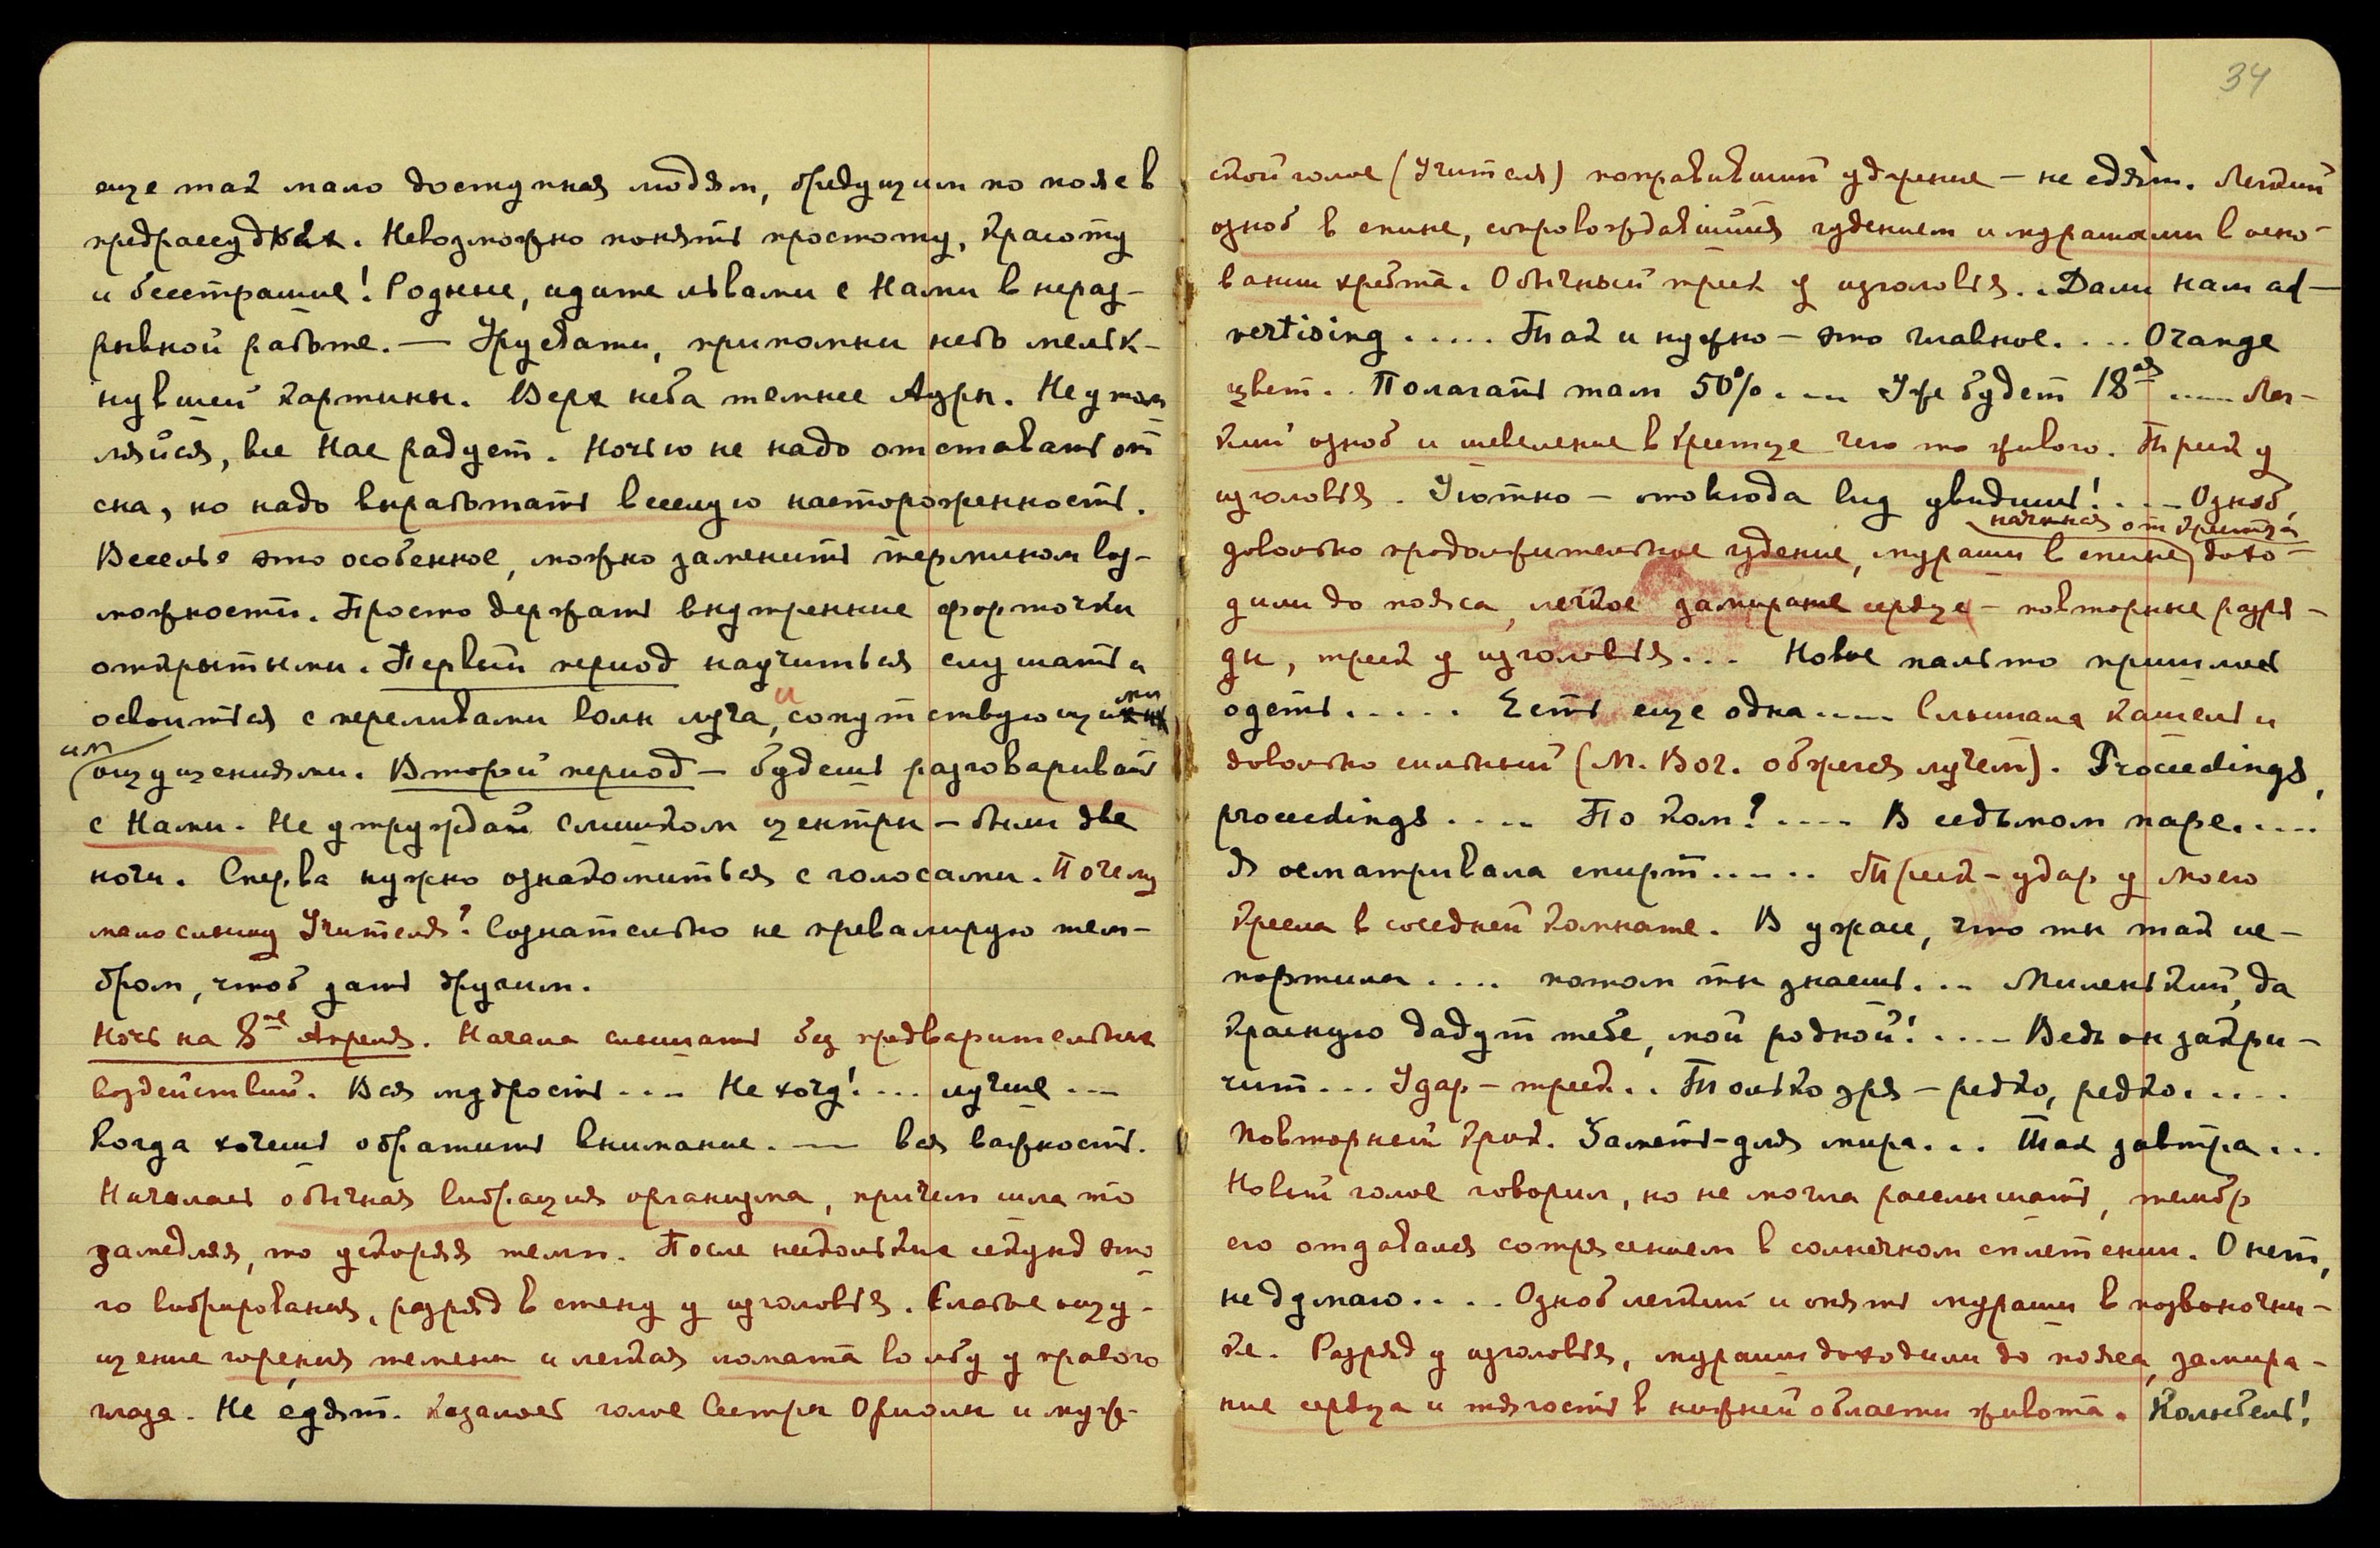 еще так мало доступная людям, бредущим по пояс в
предрассудках. Невозможно понять простоту, красоту
и бесстрашие! Родные, идите львами с Нами в нераз-
рывной работе. — Урусвати, припомни небо мельк-
нувшей картины. Верх неба темнее Азры. Не утом
ляйся, все Нас радует. Ночью не надо отставать от
сна, но надо вработать веселую настороженность.
Веселье это особенное, можно заменить термином воз-
можности. Просто держать внутренние форточки
открытыми. Первый период научиться слушать и
освоиться с переливами волн луча, и сопутствующими
им ощущениями. Второй период — будешь разговаривать
с Нами. Не утруждай слишком центры — были две
ночи. Сперва нужно ознакомиться с голосами. Почему
мало слышу Учителя? Сознательно не превалирую тем-
бром, чтоб дать другим.
Ночь на 8ое Апреля. Начала слышать без предварительных
воздействий. Вся мудрость .... Не хочу! .... лучше ....
Когда хочешь обратить внимание. — вся важность.
Началась обычная вибрация организма, причем шла то
замедляя, то ускоряя темп. После нескольких секунд это
го вибрирования, разряд в стену у изголовья. Слабое ощу-
щение горения темени и легкая ломата во лбу у правого
глаза. Не едят. Казалось голос Сестры Ориолы и муж-
34
ской голос (Учителя) поправивший ударение — не едят. Легкий
озноб в спине, сопровождавшийся гудением и мурашами в осно-
вании хребта. Обычный треск у изголовья.. Дали нам ad-
vertising ..... Так и нужно — это главное. ... Orange
цвет.. Полагать там 50%. ... Уже будет 18ая ..... Лег-
кий озноб и шевеление в крестце чего то живого. Треск у
изголовья. Уютно — отовсюда вид увидишь! .... Озноб,
начиная от крестца
довольно продолжительное гудение, мураши в спине, дохо-
дили до пояса, легкое замирание сердца — повторные разря-
ды, треск у изголовья... Новое пальто пришлось
одеть ..... Есть еще одна ..... Слышала кашель и
довольно сильный (М. Вог. обжегся лучем). Proceedings,
proceedings .... По ком? .... В седьмом паре.....
Я осматривала спирт ..... Треск-удар у моего
кресла в соседней комнате. В ужасе, что ты так ис-
портила .... потом ты знаешь ... Миленький, да
красную дадут тебе, мой родной! .... Ведь он закри-
чит... Удар — треск.. Только зря — редко, редко.....
Повторный крик. Заметь-для мира... Так завтра...
Новый голос говорил, но не могла расслышать, тембр
его отдавался сотрясением в солнечном сплетении. О нет,
не думаю.... Озноб легкий и опять мураши в позвоночни-
ке. Разряд у изголовья, мураши доходили до пояса, замира-
ние сердца и тягость в нижней области живота. Колыбель!